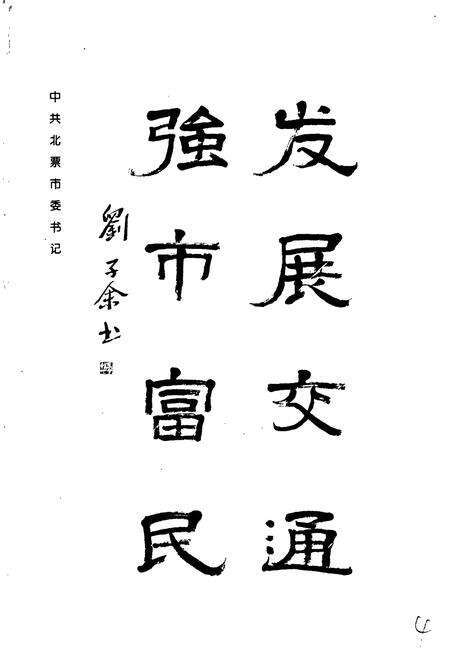 发展交通
強市富民
劉子余书
中共北票市委书记